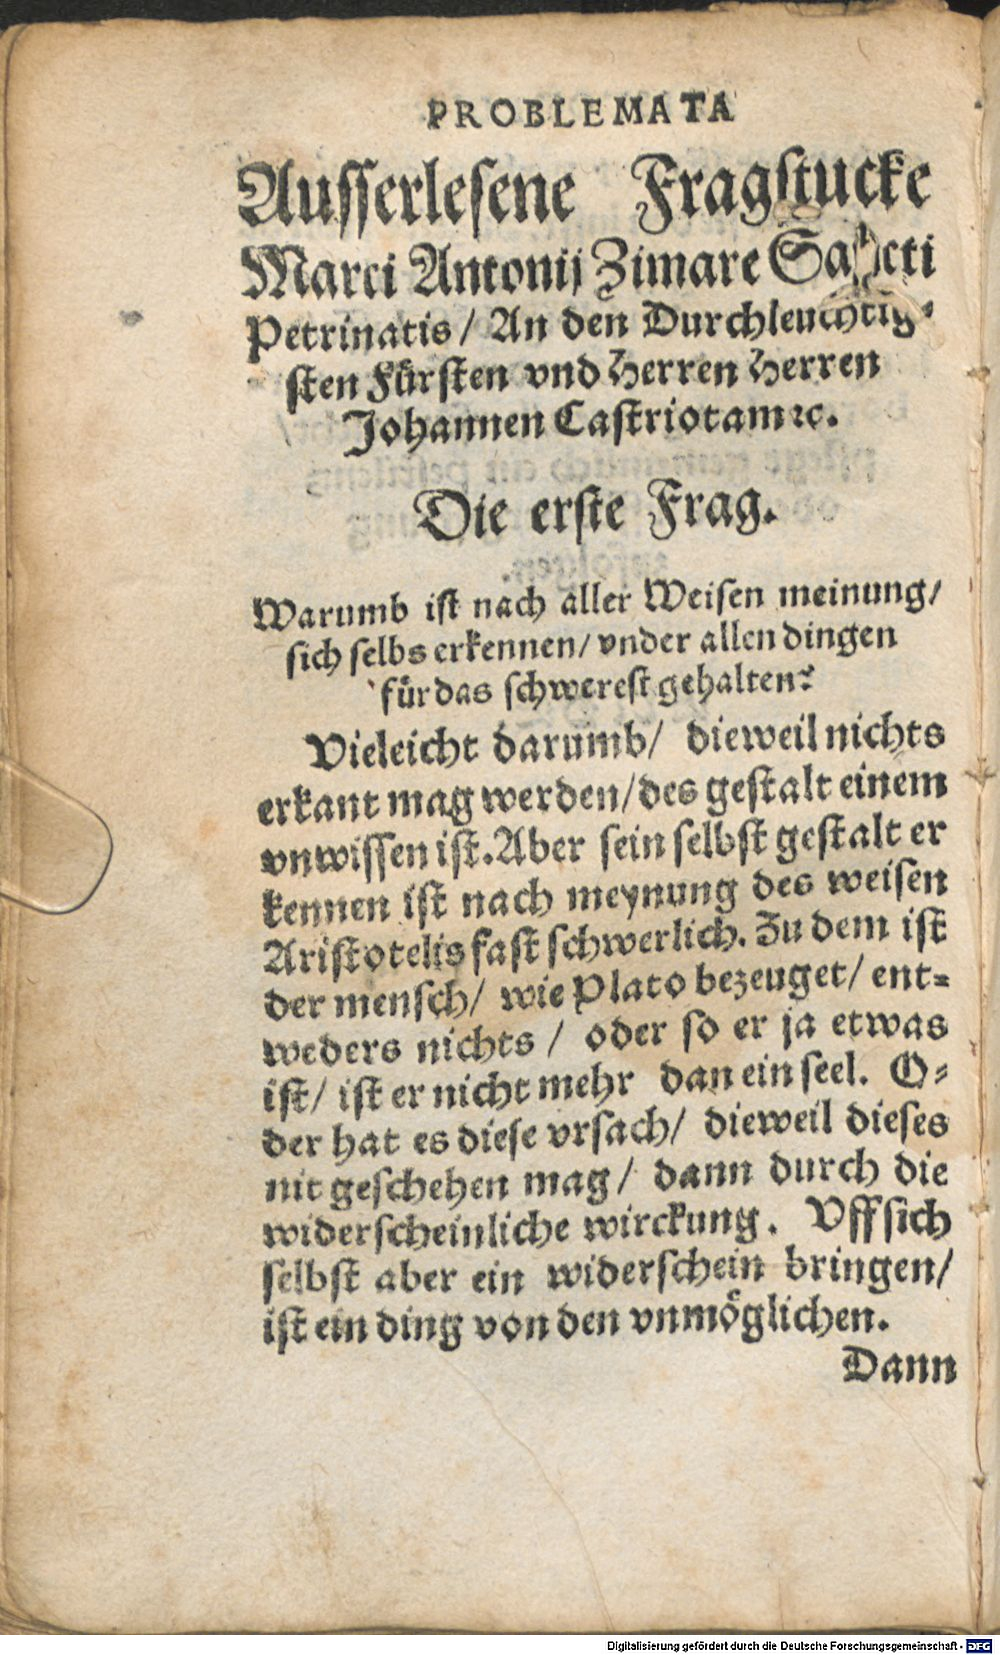 PROBLEMATA
Ausserlesene Fragstucke
Marci Antonij Zimare Sancti
Petrinatis/ An den Durchleuchtig⸗
sten Fürsten vnd Herren Herren
Johannen Castriotam ꝛc.
Die erste Frag.
Warumb ist nach aller Weisen meinung/
sich selbs erkennen/ vnder allen dingen
für das schwerest gehalten?
Vieleicht darumb/ dieweil nichts
erkant mag werden/ des gestalt einem
vnwissen ist. Aber sein selbst gestalt er
kennen ist nach meynung des weisen
Aristotelis fast schwerlich. Zu dem ist
der mensch/ wie Plato bezeuget/ ent⸗
weders nichts / oder so er ja etwas
ist/ ist er nicht mehr dan ein seel. O⸗
der hat es diese vrsach/ dieweil dieses
nit geschehen mag/ dann durch die
widerscheinliche wirckung. Vff sich
selbst aber ein widerschein bringen/
ist ein ding von den vnmöglichen.
Dann
Digitalisierung gefördert durch die Deutsche Forschungsgemeinschaft - DFG